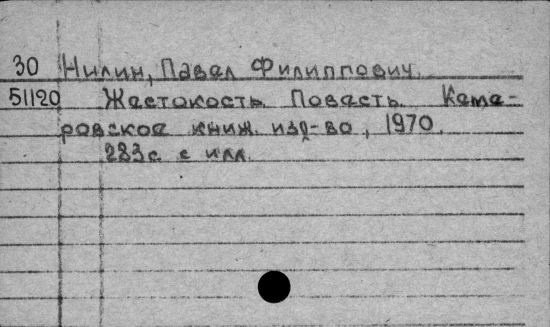 30 Нилин, Павел Филиппович.
51120 Жестокость. Повесть. Кеме-
ровское книж. изд-во, 1970.
283с. с илл.